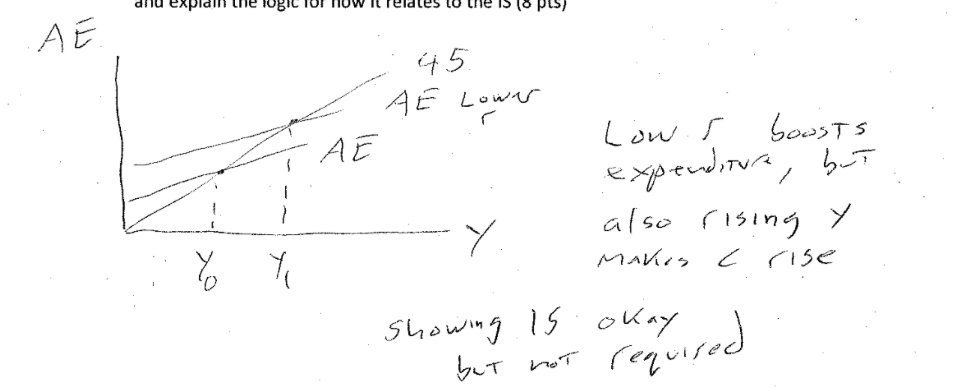 and explain the logic for how it relates to the IS (8 pts)
AE
45
AE Lower
r
AE
Low r boosts
expenditure, but
also rising Y
makes C rise
Y
Y0 Y1
Showing IS okay
but not required